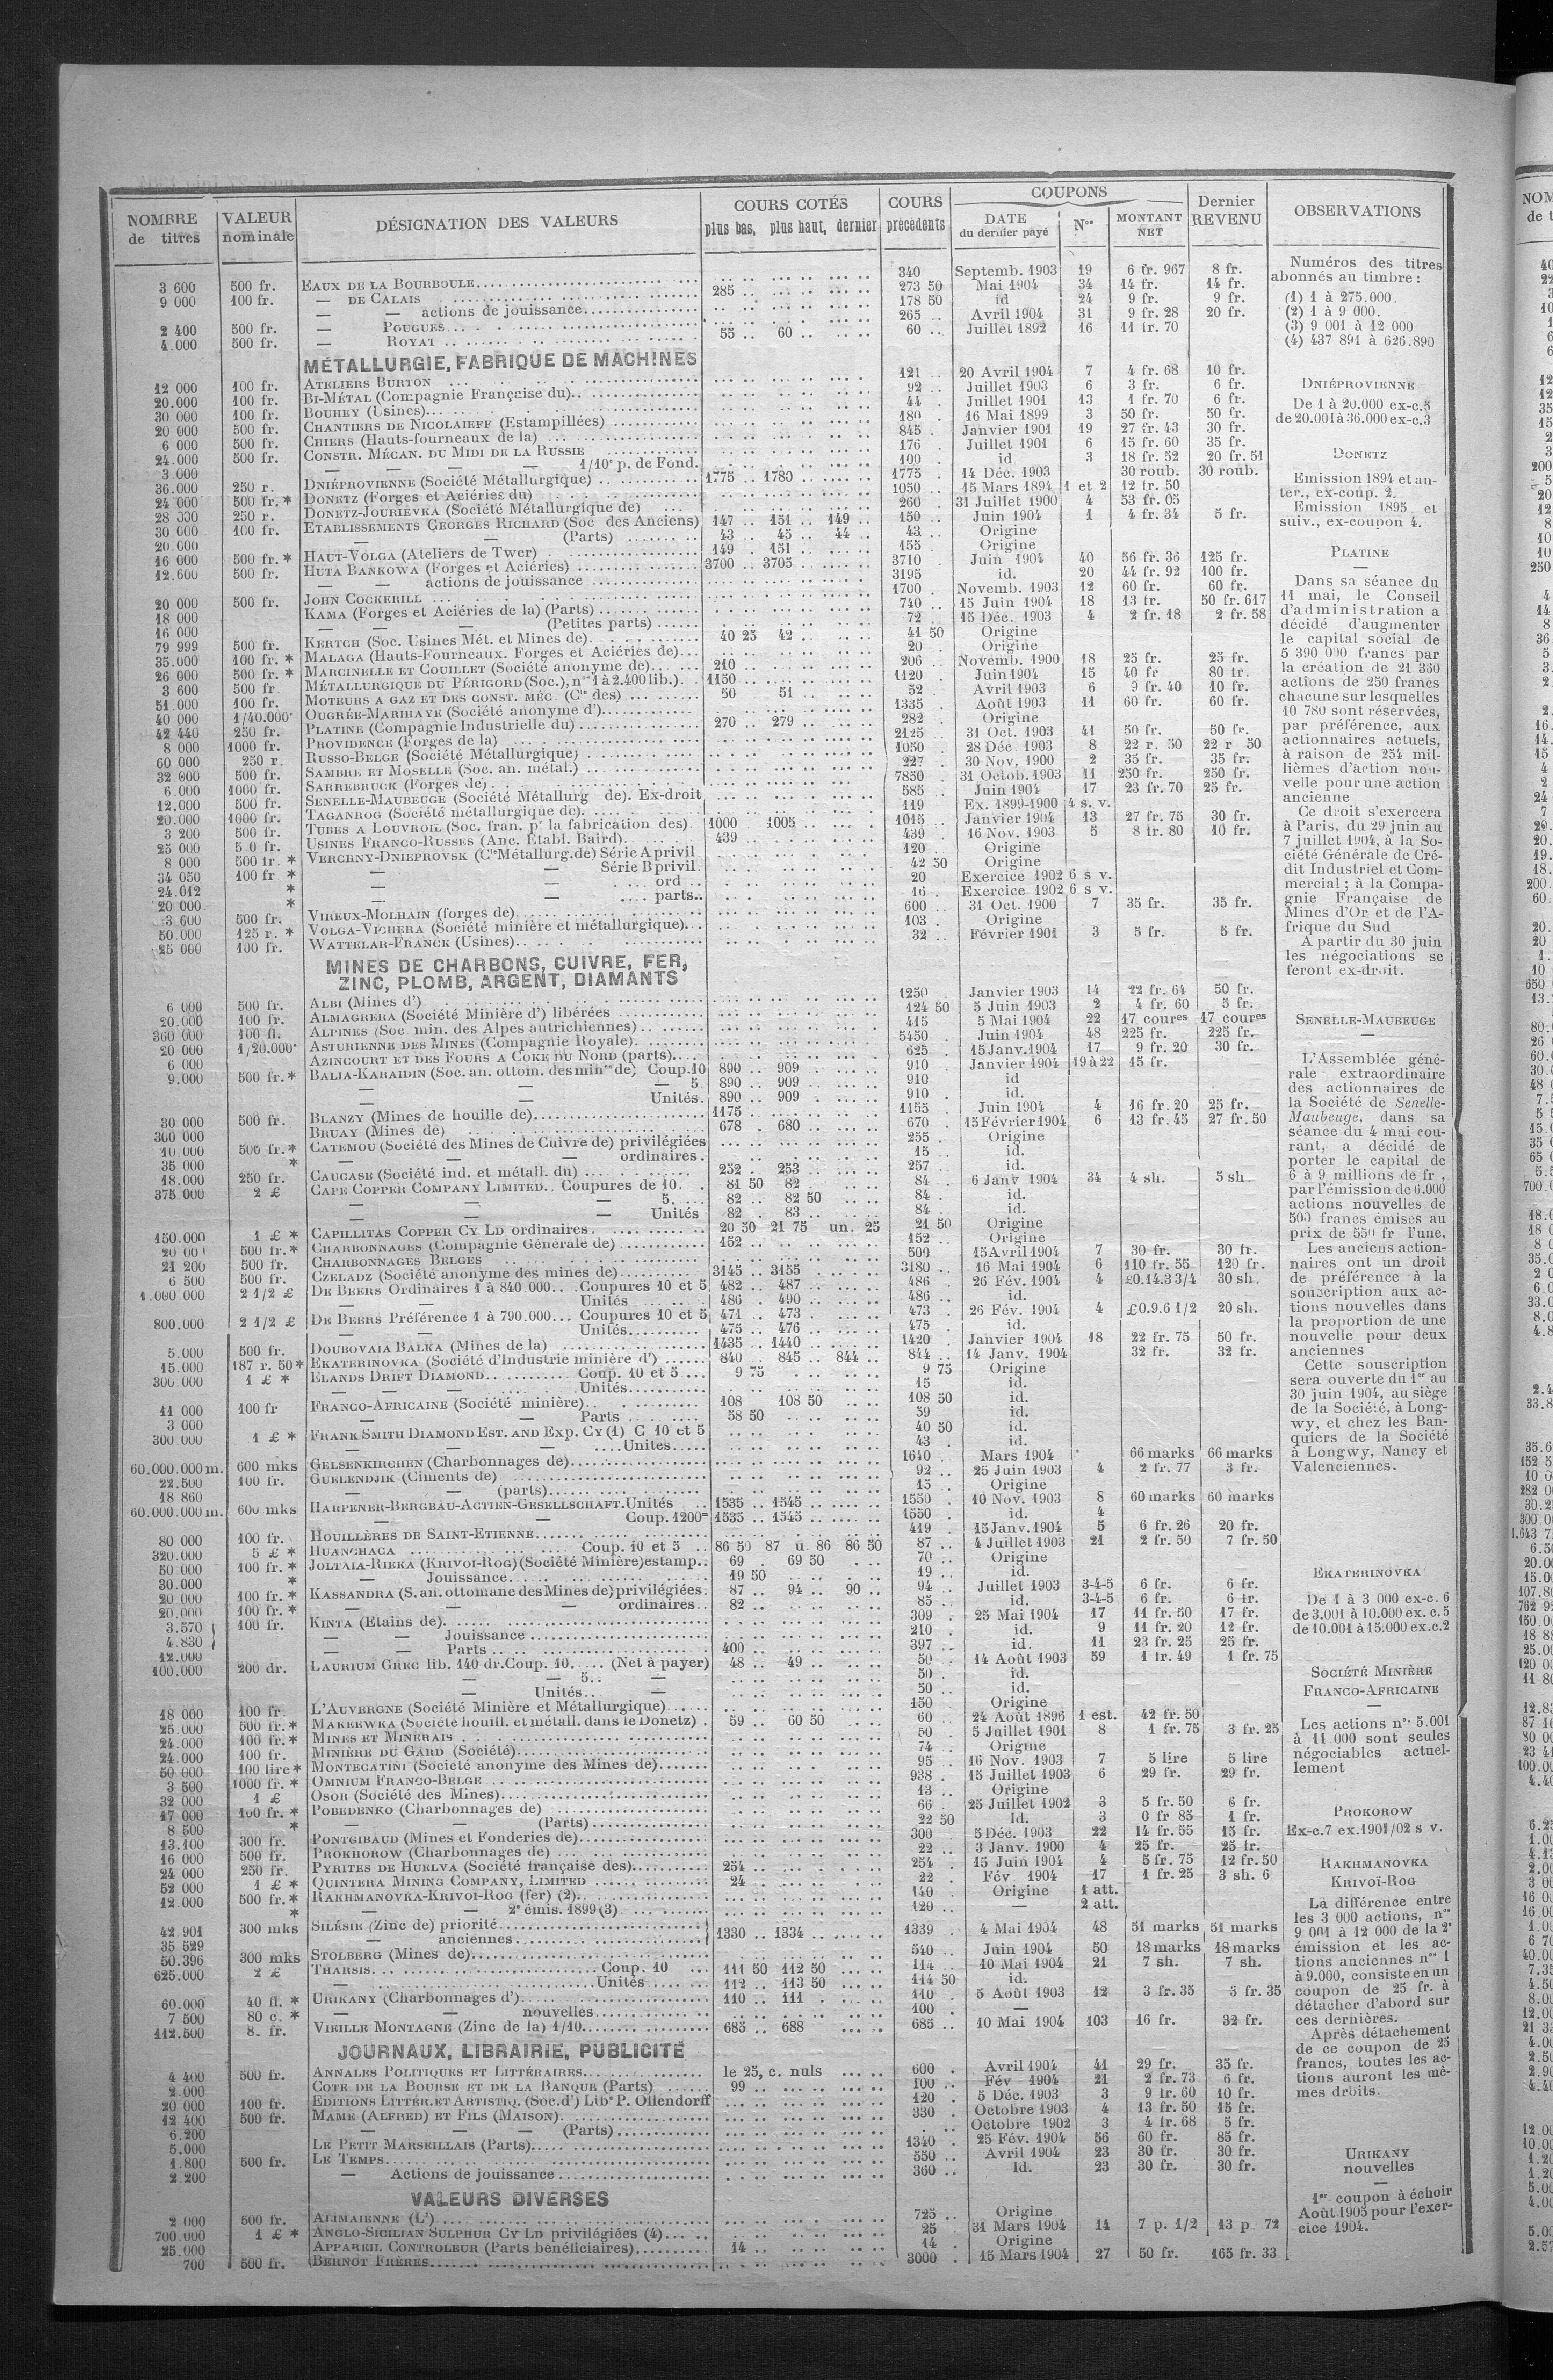 NOMBRE de titres | VALEUR nominale | DÉSIGNATION DES VALEURS | COURS COTÉS plus bas, plus haut, dernier | COURS précédents | COUPONS DATE du dernier payé | Nos | MONTANT NET | Dernier REVENU | OBSERVATIONS
3 600 500 fr. EAUX DE LA BOURBOULE 340 Septemb. 1903 19 6 fr. 967 8 fr.
9 000 100 fr. — DE CALAIS 285 273 50 Mai 1904 34 14 fr. 14 fr.
— — actions de jouissance 178 50 id 24 9 fr. 9 fr.
2 400 500 fr. — POUGUES 265 Avril 1904 31 9 fr. 28 20 fr.
4.000 500 fr. — ROYAT 55 60 60 Juillet 1892 16 11 fr. 70
MÉTALLURGIE, FABRIQUE DE MACHINES
12 000 100 fr. ATELIERS BURTON 121 20 Avril 1904 7 4 fr. 68 10 fr.
20.000 100 fr. BI-MÉTAL (Compagnie Française du) 92 Juillet 1903 6 3 fr. 6 fr.
30 000 100 fr. BOUHEY (Usines) 44 Juillet 1901 13 1 fr. 70 6 fr.
20 000 500 fr. CHANTIERS DE NICOLAIEFF (Estampillées) 180 16 Mai 1899 3 50 fr. 50 fr.
6 000 500 fr. CHIERS (Hauts-fourneaux de la) 845 Janvier 1901 19 27 fr. 43 30 fr.
24.000 500 fr. CONSTR. MÉCAN. DU MIDI DE LA RUSSIE 176 Juillet 1901 6 15 fr. 60 35 fr.
3.000 — — — — 1/10e p. de Fond. 100 id 3 18 fr. 52 20 fr. 51
36.000 250 r. DNIÉPROVIENNE (Société Métallurgique) 1775 1780 1775 14 Déc. 1903 30 roub. 30 roub.
24 000 500 fr. * DONETZ (Forges et Aciéries du) 1050 15 Mars 1894 1 et 2 12 fr. 50
28 000 250 r. DONETZ-JOURIEVKA (Société Métallurgique de) 260 31 Juillet 1900 4 53 fr. 05
30 000 100 fr. ETABLISSEMENTS GEORGES RICHARD (Soc des Anciens) 147 151 149 150 Juin 1904 1 4 fr. 34 5 fr.
20.000 — — (Parts) 43 45 44 43 Origine
16 000 500 fr. * HAUT-VOLGA (Ateliers de Twer) 149 151 155 Origine
12.600 500 fr. HUTA BANKOWA (Forges et Aciéries) 3700 3705 3710 Juin 1904 40 56 fr. 36 125 fr.
— — actions de jouissance 3195 id. 20 44 fr. 92 100 fr.
20 000 500 fr. JOHN COCKERILL 1700 Novemb. 1903 12 60 fr. 60 fr.
18 000 KAMA (Forges et Aciéries de la) (Parts) 740 15 Juin 1904 18 13 fr. 50 fr. 617
16 000 — — — (Petites parts) 72 15 Déc. 1903 4 2 fr. 18 2 fr. 58
79 999 500 fr. KERTCH (Soc. Usines Mét. et Mines de) 40 25 42 41 50 Origine
35.000 100 fr. * MALAGA (Hauts-Fourneaux. Forges et Aciéries de) 20 Origine
26 000 500 fr. * MARCINELLE ET COUILLET (Société anonyme de) 210 206 Novemb. 1900 18 25 fr. 25 fr.
3 600 500 fr MÉTALLURGIQUE DU PÉRIGORD (Soc.), nos 1 à 2.400 lib.) 1150 1120 Juin 1904 15 40 fr 80 fr.
51 000 100 fr. MOTEURS A GAZ ET DES CONST. MÉC. (Cie des) 50 51 52 Avril 1903 6 9 fr. 40 10 fr.
40 000 1/40.000e OUGRÉE-MARIHAYE (Société anonyme d') 1335 Août 1903 11 60 fr. 60 fr.
42 440 250 fr. PLATINE (Compagnie Industrielle du) 270 279 282 Origine
8 000 1000 fr. PROVIDENCE (Forges de la) 2125 31 Oct. 1903 41 50 fr. 50 fr.
60 000 250 r. RUSSO-BELGE (Société Métallurgique) 1050 28 Déc 1903 8 22 r. 50 22 r 50
32 600 500 fr. SAMBRE ET MOSELLE (Soc. an. métal.) 227 30 Nov. 1900 2 35 fr. 35 fr.
6.000 1000 fr. SARREBRUCK (Forges de) 7850 31 Octob. 1903 11 250 fr. 250 fr.
12.000 500 fr. SENELLE-MAUBEUGE (Société Métallurg de). Ex-droit 585 Juin 1904 17 23 fr. 70 25 fr.
20.000 1000 fr. TAGANROG (Société métallurgique de) 119 Ex. 1899-1900 4 s. v.
3 200 500 fr. TUBES A LOUVROIL (Soc. fran. pr la fabrication des) 1000 1005 1015 Janvier 1904 13 27 fr. 75 30 fr.
25 000 5 0 fr. USINES FRANCO-RUSSES (Anc. Etabl. Baird) 439 439 16 Nov. 1903 5 8 fr. 80 10 fr.
8 000 500 fr. * VERCHNY-DNIEPROVSK (Cie Métallurg. de) Série A privil 120 Origine
34 050 100 fr * — — Série B privil. 42 50 Origine
24.012 * — — ord 20 Exercice 1902 6 s v.
20 000 * — — parts 16 Exercice 1902 6 s v.
3.600 500 fr. VIREUX-MOLHAIN (forges de) 600 31 Oct. 1900 7 35 fr. 35 fr.
50.000 125 r. * VOLGA-VICHERA (Société minière et métallurgique) 103 Origine
25 000 100 fr. WATTELAR-FRANCK (Usines) 32 Février 1901 3 5 fr. 5 fr.
MINES DE CHARBONS, CUIVRE, FER,
ZINC, PLOMB, ARGENT, DIAMANTS
6 000 500 fr. ALBI (Mines d') 1250 Janvier 1903 14 22 fr. 64 50 fr.
20.000 100 fr. ALMAGRERA (Société Minière d') libérées 124 50 5 Juin 1903 2 4 fr. 60 5 fr.
360 000 100 fl. ALPINES (Soc min. des Alpes autrichiennes) 415 5 Mai 1904 22 17 coures 17 coures
20 000 1/20.000e ASTURIENNE DES MINES (Compagnie Royale) 5450 Juin 1904 48 225 fr. 225 fr.
6 000 AZINCOURT ET DES FOURS A COKE DU NORD (parts) 625 15 Janv. 1904 17 9 fr. 20 30 fr.
9.000 500 fr. * BALIA-KARAIDIN (Soc. an. ottom. des mines de) Coup. 10 890 909 910 Janvier 1904 19 à 22 15 fr.
— — — 5 890 909 910 id
— — Unités. 890 909 910 id.
30 000 500 fr. BLANZY (Mines de houille de) 1175 1155 Juin 1904 4 16 fr. 20 25 fr.
300 000 BRUAY (Mines de) 678 680 670 15 Février 1904 6 13 fr. 45 27 fr. 50
10.000 500 fr. * CATEMOU (Société des Mines de Cuivre de) privilégiées 255 Origine
35 000 * — — — ordinaires 15 id.
18.000 250 fr. CAUCASE (Société ind. et métall. du) 252 253 257 id.
375 000 2 £ CAPE COPPER COMPANY LIMITED.. Coupures de 10. 81 50 82 84 6 Janv 1904 34 4 sh. 5 sh.
— — — 5. 82 82 50 84 id.
— — — Unités 82 83 84 id.
150.000 1 £ * CAPILLITAS COPPER CY LD ordinaires 20 50 21 75 un. 25 21 50 Origine
500 fr. * CHARBONNAGES (Compagnie Générale de) 152 152 Origine
21 200 500 fr. CHARBONNAGES BELGES 500 15 Avril 1904 7 30 fr. 30 fr.
6 500 500 fr. CZELADZ (Société anonyme des mines de) 3145 3155 3180 16 Mai 1904 6 110 fr. 55 120 fr.
1.000 000 2 1/2 £ DE BEERS Ordinaires 1 à 840 000 Coupures 10 et 5 482 487 486 26 Fév. 1904 4 £0.14.3 3/4 30 sh.
— — Unités 486 490 486 id.
800.000 2 1/2 £ DE BEERS Préférence 1 à 790.000 Coupures 10 et 5 471 473 473 26 Fév. 1904 4 £0.9.6 1/2 20 sh.
— — Unités 475 476 475 id.
5.000 500 fr. DOUBOVAIA BALKA (Mines de la) 1435 1440 1420 Janvier 1904 18 22 fr. 75 50 fr.
15.000 187 r. 50 * EKATERINOVKA (Société d'Industrie minière d') 840 845 844 844 14 Janv. 1904 32 fr. 32 fr.
300.000 1 £ * ELANDS DRIFT DIAMOND Coup. 10 et 5 9 75 9 75 Origine
— — — Unités 15 id.
11 000 100 fr FRANCO-AFRICAINE (Société minière) 108 108 50 108 50 id.
3 000 — — Parts 58 50 59 id.
300.000 1 £ * FRANK SMITH DIAMOND EST. AND EXP. CY (1) C 10 et 5 40 50 id.
— — — Unités 43 id.
60.000.000 m. 600 mks GELSENKIRCHEN (Charbonnages de) 1640 Mars 1904 66 marks 66 marks
22.500 100 fr. GUELENDJIK (Ciments de) 92 25 Juin 1903 4 2 fr. 77 3 fr.
18 860 — — (parts) 15 Origine
60.000.000 m. 600 mks HARPENER-BERGBAU-ACTIEN-GESELLSCHAFT. Unités 1535 1545 1550 10 Nov. 1903 8 60 marks 60 marks
— — Coup. 1200m 1535 1545 1550 id. 4
80 000 100 fr. HOUILLÈRES DE SAINT-ETIENNE 419 15 Janv. 1904 5 6 fr. 26 20 fr.
320.000 5 £ * HUANCHACA Coup. 10 et 5 86 50 87 u. 86 86 50 87 4 Juillet 1903 21 2 fr. 50 7 fr. 50
50.000 100 fr. * JOLTAIA-RIEKA (KRIVOI-ROG) (Société Minière) estamp. 69 69 50 70 Origine
30.000 * — Jouissance 19 50 19 id.
20 000 100 fr. * KASSANDRA (S. an. ottomane des Mines de) privilégiées 87 94 90 94 Juillet 1903 3-4-5 6 fr. 6 fr.
20.000 100 fr. * — — — ordinaires 82 85 id. 3-4-5 6 fr. 6 fr.
3.570 100 fr. KINTA (Etains de) 309 25 Mai 1904 17 11 fr. 50 17 fr.
4.830 — — Jouissance 210 id. 9 11 fr. 20 12 fr.
12.000 — — Parts 400 397 id. 11 23 fr. 25 25 fr.
100.000 200 dr. LAURIUM GREC lib. 140 dr. Coup. 10. (Net à payer) 48 49 50 14 Août 1903 59 1 fr. 49 1 fr. 75
— — 5 — 50 id.
— Unités — 50 id.
18 000 100 fr. L'AUVERGNE (Société Minière et Métallurgique) 150 Origine
25.000 500 fr. * MAKEEWKA (Société houill. et métall. dans le Donetz) 59 60 50 60 24 Août 1896 1 est. 42 fr. 50
24.000 100 fr. * MINES ET MINERAIS 50 5 Juillet 1901 8 1 fr. 75 3 fr. 25
24.000 100 fr. MINIÈRE DU GARD (Société) 74 Origine
50 000 100 lire * MONTECATINI (Société anonyme des Mines de) 95 16 Nov. 1903 7 5 lire 5 lire
3 500 1000 fr. * OMNIUM FRANCO-BELGE 938 15 Juillet 1903 6 29 fr. 29 fr.
32 000 1 £ OSOR (Société des Mines) 13 Origine
17 000 100 fr. * POBEDENKO (Charbonnages de) 66 25 Juillet 1902 3 5 fr. 50 6 fr.
8 500 * — — (Parts) 22 50 Id. 3 0 fr 85 1 fr.
13.100 300 fr. PONTGIBAUD (Mines et Fonderies de) 300 5 Déc. 1903 22 14 fr. 55 15 fr.
16 000 500 fr. PROKHOROW (Charbonnages de) 22 3 Janv. 1900 4 25 fr. 25 fr.
24 000 250 fr. PYRITES DE HUELVA (Société française des) 254 254 15 Juin 1904 4 5 fr. 75 12 fr. 50
52 000 1 £ * QUINTERA MINING COMPANY, LIMITED 24 22 Fév 1904 17 1 fr. 25 3 sh. 6
12.000 500 fr. * RAKHMANOVKA-KRIVOI-ROG (fer) (2) 140 Origine 1 att.
* — — 2e émis. 1899 (3) 120 — 2 att.
42 901 300 mks SILÉSIE (Zinc de) priorité 1330 1334 1339 4 Mai 1904 48 51 marks 51 marks
35 529 — anciennes
50.396 300 mks STOLBERG (Mines de) 540 Juin 1904 50 18 marks 18 marks
625.000 2 £ THARSIS Coup. 10 111 50 112 50 114 10 Mai 1904 21 7 sh. 7 sh.
— Unités 112 113 50 114 50 id.
60.000 40 fl. * URIKANY (Charbonnages d') 110 111 110 5 Août 1903 12 3 fr. 35 3 fr. 35
7 500 80 c. * — — nouvelles 100 —
112.500 8. fr. VIEILLE MONTAGNE (Zinc de la) 1/10 685 688 685 10 Mai 1904 103 16 fr. 32 fr.
JOURNAUX, LIBRAIRIE, PUBLICITÉ
4 400 500 fr. ANNALES POLITIQUES ET LITTÉRAIRES le 25, c. nuls 600 Avril 1904 41 29 fr. 35 fr.
2.000 COTE DE LA BOURSE ET DE LA BANQUE (Parts) 99 100 Fév 1904 21 2 fr. 73 6 fr.
20 000 100 fr. EDITIONS LITTÉR. ET ARTISTIQ. (Soc. d') Libe P. Ollendorff 120 5 Déc. 1903 3 9 fr. 60 10 fr.
12 400 500 fr. MAME (ALFRED) ET FILS (MAISON) 330 Octobre 1903 4 13 fr. 50 15 fr.
6.200 — — — (Parts) Octobre 1902 3 4 fr. 68 5 fr.
5.000 LE PETIT MARSEILLAIS (Parts) 1340 25 Fév. 1904 56 60 fr. 85 fr.
1.800 500 fr. LE TEMPS 550 Avril 1904 23 30 fr. 30 fr.
2 200 — Actions de jouissance 360 Id. 23 30 fr. 30 fr.
VALEURS DIVERSES
2 000 500 fr. ALIMAIENNE (L') 725 Origine
700.000 1 £ * ANGLO-SICILIAN SULPHUR CY LD privilégiées (4) 25 31 Mars 1904 14 7 p. 1/2 13 p. 72
25.000 APPAREIL CONTROLEUR (Parts bénéficiaires) 14 14 Origine
700 500 fr. BERNOT FRÈRES 3000 15 Mars 1904 27 50 fr. 165 fr. 33
Numéros des titres
abonnés au timbre :
(1) 1 à 275.000.
(2) 1 à 9 000.
(3) 9 001 à 12 000
(4) 437 891 à 626.890
DNIÉPROVIENNE
De 1 à 20.000 ex-c.5
de 20.001 à 36.000 ex-c.3
DONETZ
Emission 1894 et an-
ter., ex-coup. 2.
Emission 1895 et
suiv., ex-coupon 4.
PLATINE
—
Dans sa séance du
11 mai, le Conseil
d'administration a
décidé d'augmenter
le capital social de
5 390 000 francs par
la création de 21 360
actions de 250 francs
chacune sur lesquelles
10 780 sont réservées,
par préférence, aux
actionnaires actuels,
à raison de 254 mil-
lièmes d'action nou-
velle pour une action
ancienne
Ce droit s'exercera
à Paris, du 29 juin au
7 juillet 1904, à la So-
ciété Générale de Cré-
dit Industriel et Com-
mercial ; à la Compa-
gnie Française de
Mines d'Or et de l'A-
frique du Sud
A partir du 30 juin
les négociations se
feront ex-droit.
SENELLE-MAUBEUGE
—
L'Assemblée géné-
rale extraordinaire
des actionnaires de
la Société de Senelle-
Maubeuge, dans sa
séance du 4 mai cou-
rant, a décidé de
porter le capital de
6 à 9 millions de fr ,
par l'émission de 6.000
actions nouvelles de
500 francs émises au
prix de 550 fr l'une.
Les anciens action-
naires ont un droit
de préférence à la
souscription aux ac-
tions nouvelles dans
la proportion de une
nouvelle pour deux
anciennes
Cette souscription
sera ouverte du 1er au
30 juin 1904, au siège
de la Société, à Long-
wy, et chez les Ban-
quiers de la Société
à Longwy, Nancy et
Valenciennes.
EKATERINOVKA
De 1 à 3 000 ex-c. 6
de 3.001 à 10.000 ex. c. 5
de 10.001 à 15.000 ex.c.2
SOCIÉTÉ MINIÈRE
FRANCO-AFRICAINE
—
Les actions nos 5.001
à 11 000 sont seules
négociables actuel-
lement
PROKOROW
Ex-c.7 ex.1901/02 s v.
RAKHMANOVKA
KRIVOÏ-ROG
La différence entre
les 3 000 actions, nos
9 001 à 12 000 de la 2e
émission et les ac-
tions anciennes nos 1
à 9.000, consiste en un
coupon de 25 fr. à
détacher d'abord sur
ces dernières.
Après détachement
de ce coupon de 25
francs, toutes les ac-
tions auront les mê-
mes droits.
URIKANY
nouvelles
—
1er coupon à échoir
Août 1905 pour l'exer-
cice 1904.